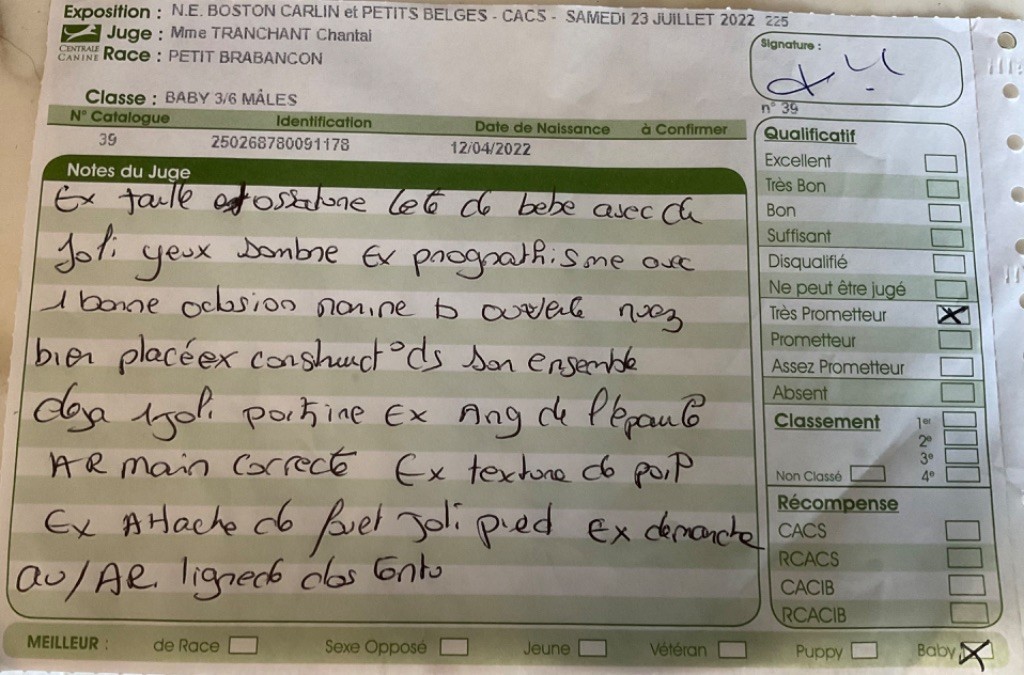 Exposition : N.E. BOSTON CARLIN et PETITS BELGES - CACS - SAMEDI 23 JUILLET 2022 225
CENTRALE CANINE
Juge : Mme TRANCHANT Chantal
Race : PETIT BRABANCON
Classe : BABY 3/6 MÂLES
Signature :
n° 39
N° Catalogue Identification Date de Naissance à Confirmer
39 250268780091178 12/04/2022
Notes du Juge
Ex taille ossature tete de bebe avec de
Joli yeux sombre Ex prognathisme avec
1 bonne oclusion narine b ouverte nuez
bien placée ex construct° ds son ensemble
deja 1 joli poitrine Ex Ang de l'épaule
AR main correcte Ex texture de poil
Ex Attache de fuet Joli pied Ex demarche
av/AR. ligne de dos tentu
Qualificatif
Excellent
Très Bon
Bon
Suffisant
Disqualifié
Ne peut être jugé
Très Prometteur X
Prometteur
Assez Prometteur
Absent
Classement 1er
2e
3e
Non Classé 4e
Récompense
CACS
RCACS
CACIB
RCACIB
MEILLEUR : de Race Sexe Opposé Jeune Vétéran Puppy Baby X